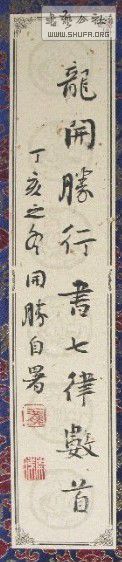 WWW.SHUFA.ORG
龍開勝行書七律數首
丁亥之冬開勝自署